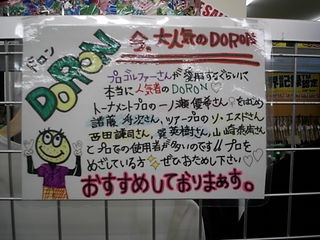 ドロン
DORON
今、大人気のDORON
プロゴルファーさんが愛用するぐらいに
本当に人気者のDORON♡
トーナメントプロの一ノ瀬優希さんをはじめ
諸藤将次さん、ツアープロのソ・エスドさん
西田謙司さん、巽英樹さん、山崎泰宏さん
とプロでの使用者が多いのです!!プロを
めざしている方ぜひおためし下さい♡♡
おすすめしておりまぁす。